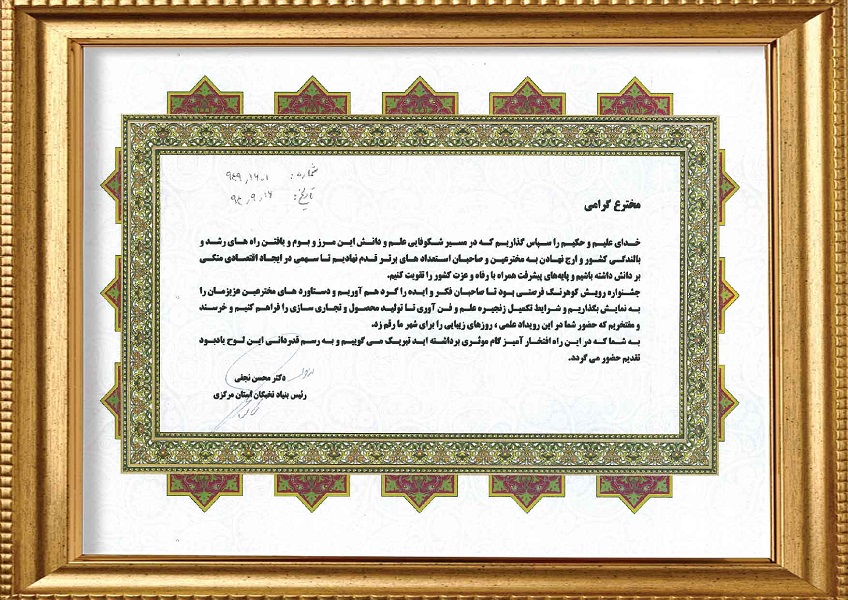 شماره: ۹۴۹٫۱۶۰۱
تاریخ: ۹۴٫۹٫۱۶
مخترع گرامی
خدای علیم و حکیم را سپاس گذاریم که در مسیر شکوفایی علم و دانش این مرز و بوم و یافتن راه های رشد و
بالندگی کشور و ارج نهادن به مخترعین و صاحبان استعداد های برتر قدم نهادیم تا سهمی در ایجاد اقتصادی متکی
بر دانش داشته باشیم و پایه‌های پیشرفت همراه با رفاه و عزت کشور را تقویت کنیم.
جشنواره رویش کوهرنگ فرصتی بود تا صاحبان فکر و ایده را گرد هم آوریم و دستاورد های مخترعین عزیزمان را
به نمایش بگذاریم و شرایط تکمیل زنجیره علم و فن آوری تا تولید محصول و تجاری سازی را فراهم کنیم و خرسند
و مفتخریم که حضور شما در این رویداد علمی ، روزهای زیبایی را برای شهر ما رقم زد.
به شما که در این راه افتخار آمیز گام موثری برداشته اید تبریک می گوییم و به رسم قدردانی این لوح یادبود
تقدیم حضور می گردد.
دکتر محسن نجفی
رئیس بنیاد نخبگان استان مرکزی